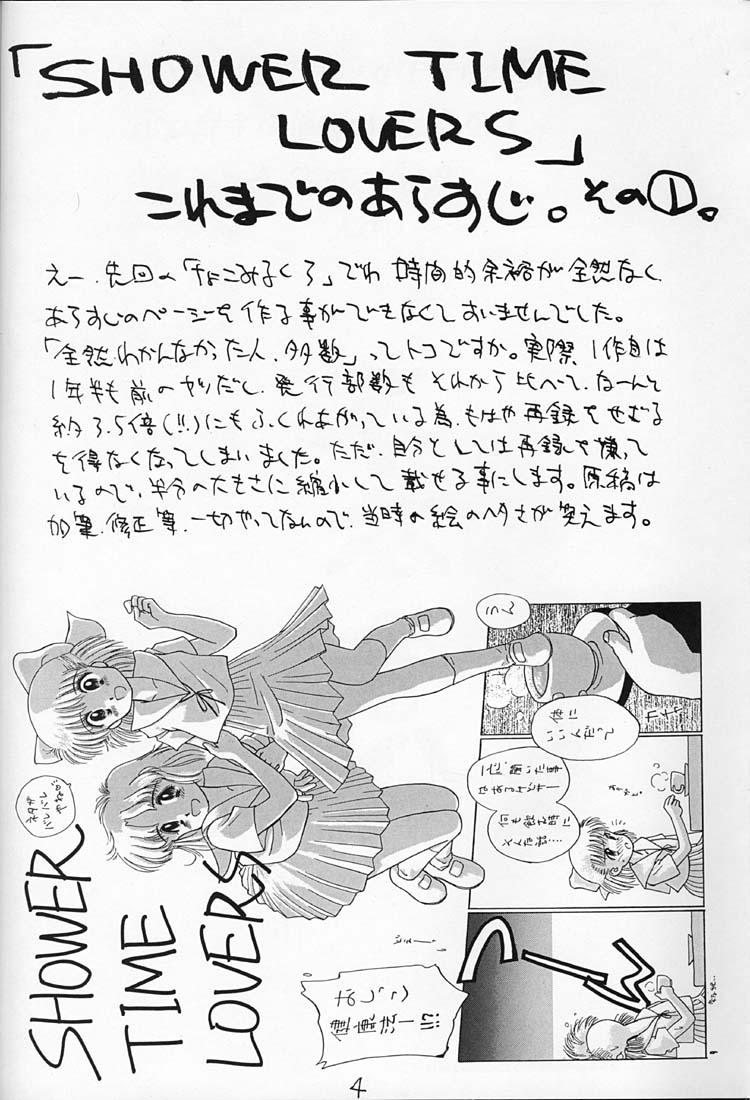 「SHOWER TIME
LOVERS」
これまでのあらすじ。その①。
えー、先回の「ちょこみるくろ」でわ 時間的余裕が全然なく、
あらすじのページを作る事ができなくてすいませんでした。
「全然わかんなかった人、多数」ってトコですか。実際 1作目は
1年半も前のヤツだし、発行部数も それから比べて、なーんと
約3.5倍(!!)にもふくれあがっている為、もはや再録をせざる
を得なくなってしまいました。ただ、自分としては再録を嫌って
いるので、半分の大きさに縮小して 載せる事にします。原稿は
加筆、修正等、一切やってないので、当時の絵のヘタさが笑えます。
うん
体に
いいんだって
一応、聞いた事
はあるけどサー
何も飲む時に
つーん
健康法ー!!
SHOWER
TIME
LOVERS
4